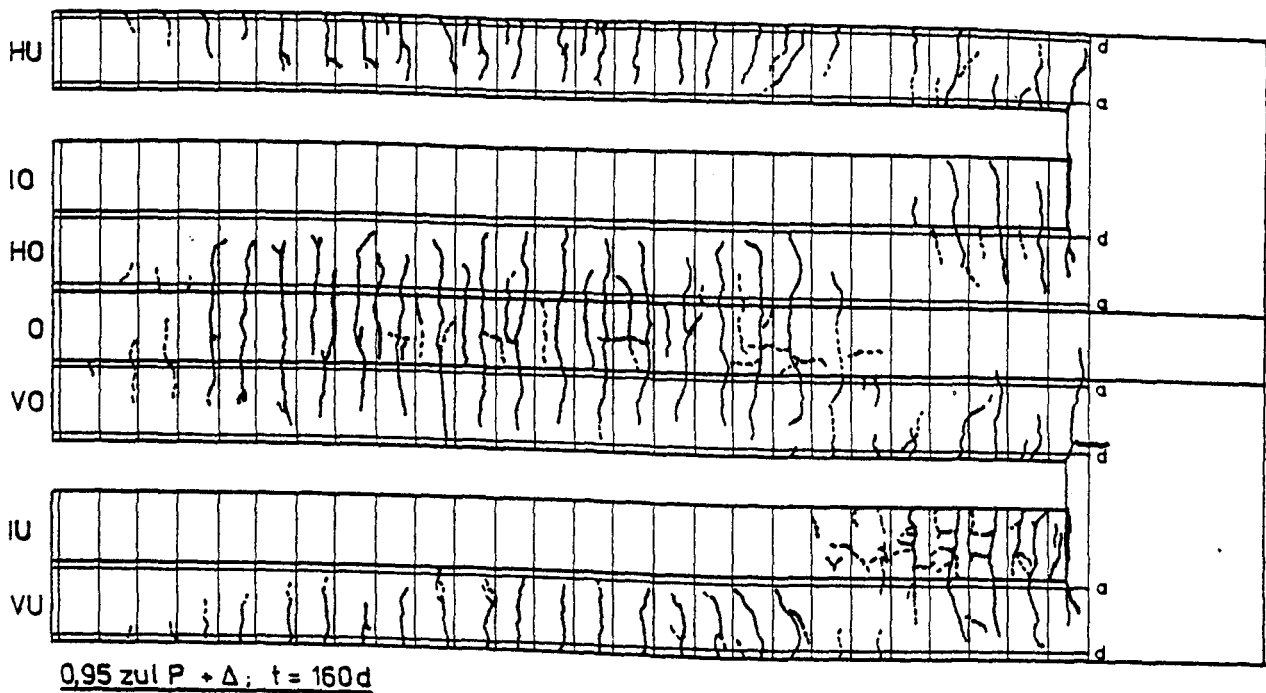 HU
d
a
IO
HO
d
a
O
VO
a
d
IU
VU
a
d
0,95 zul P + Δ; t = 160d